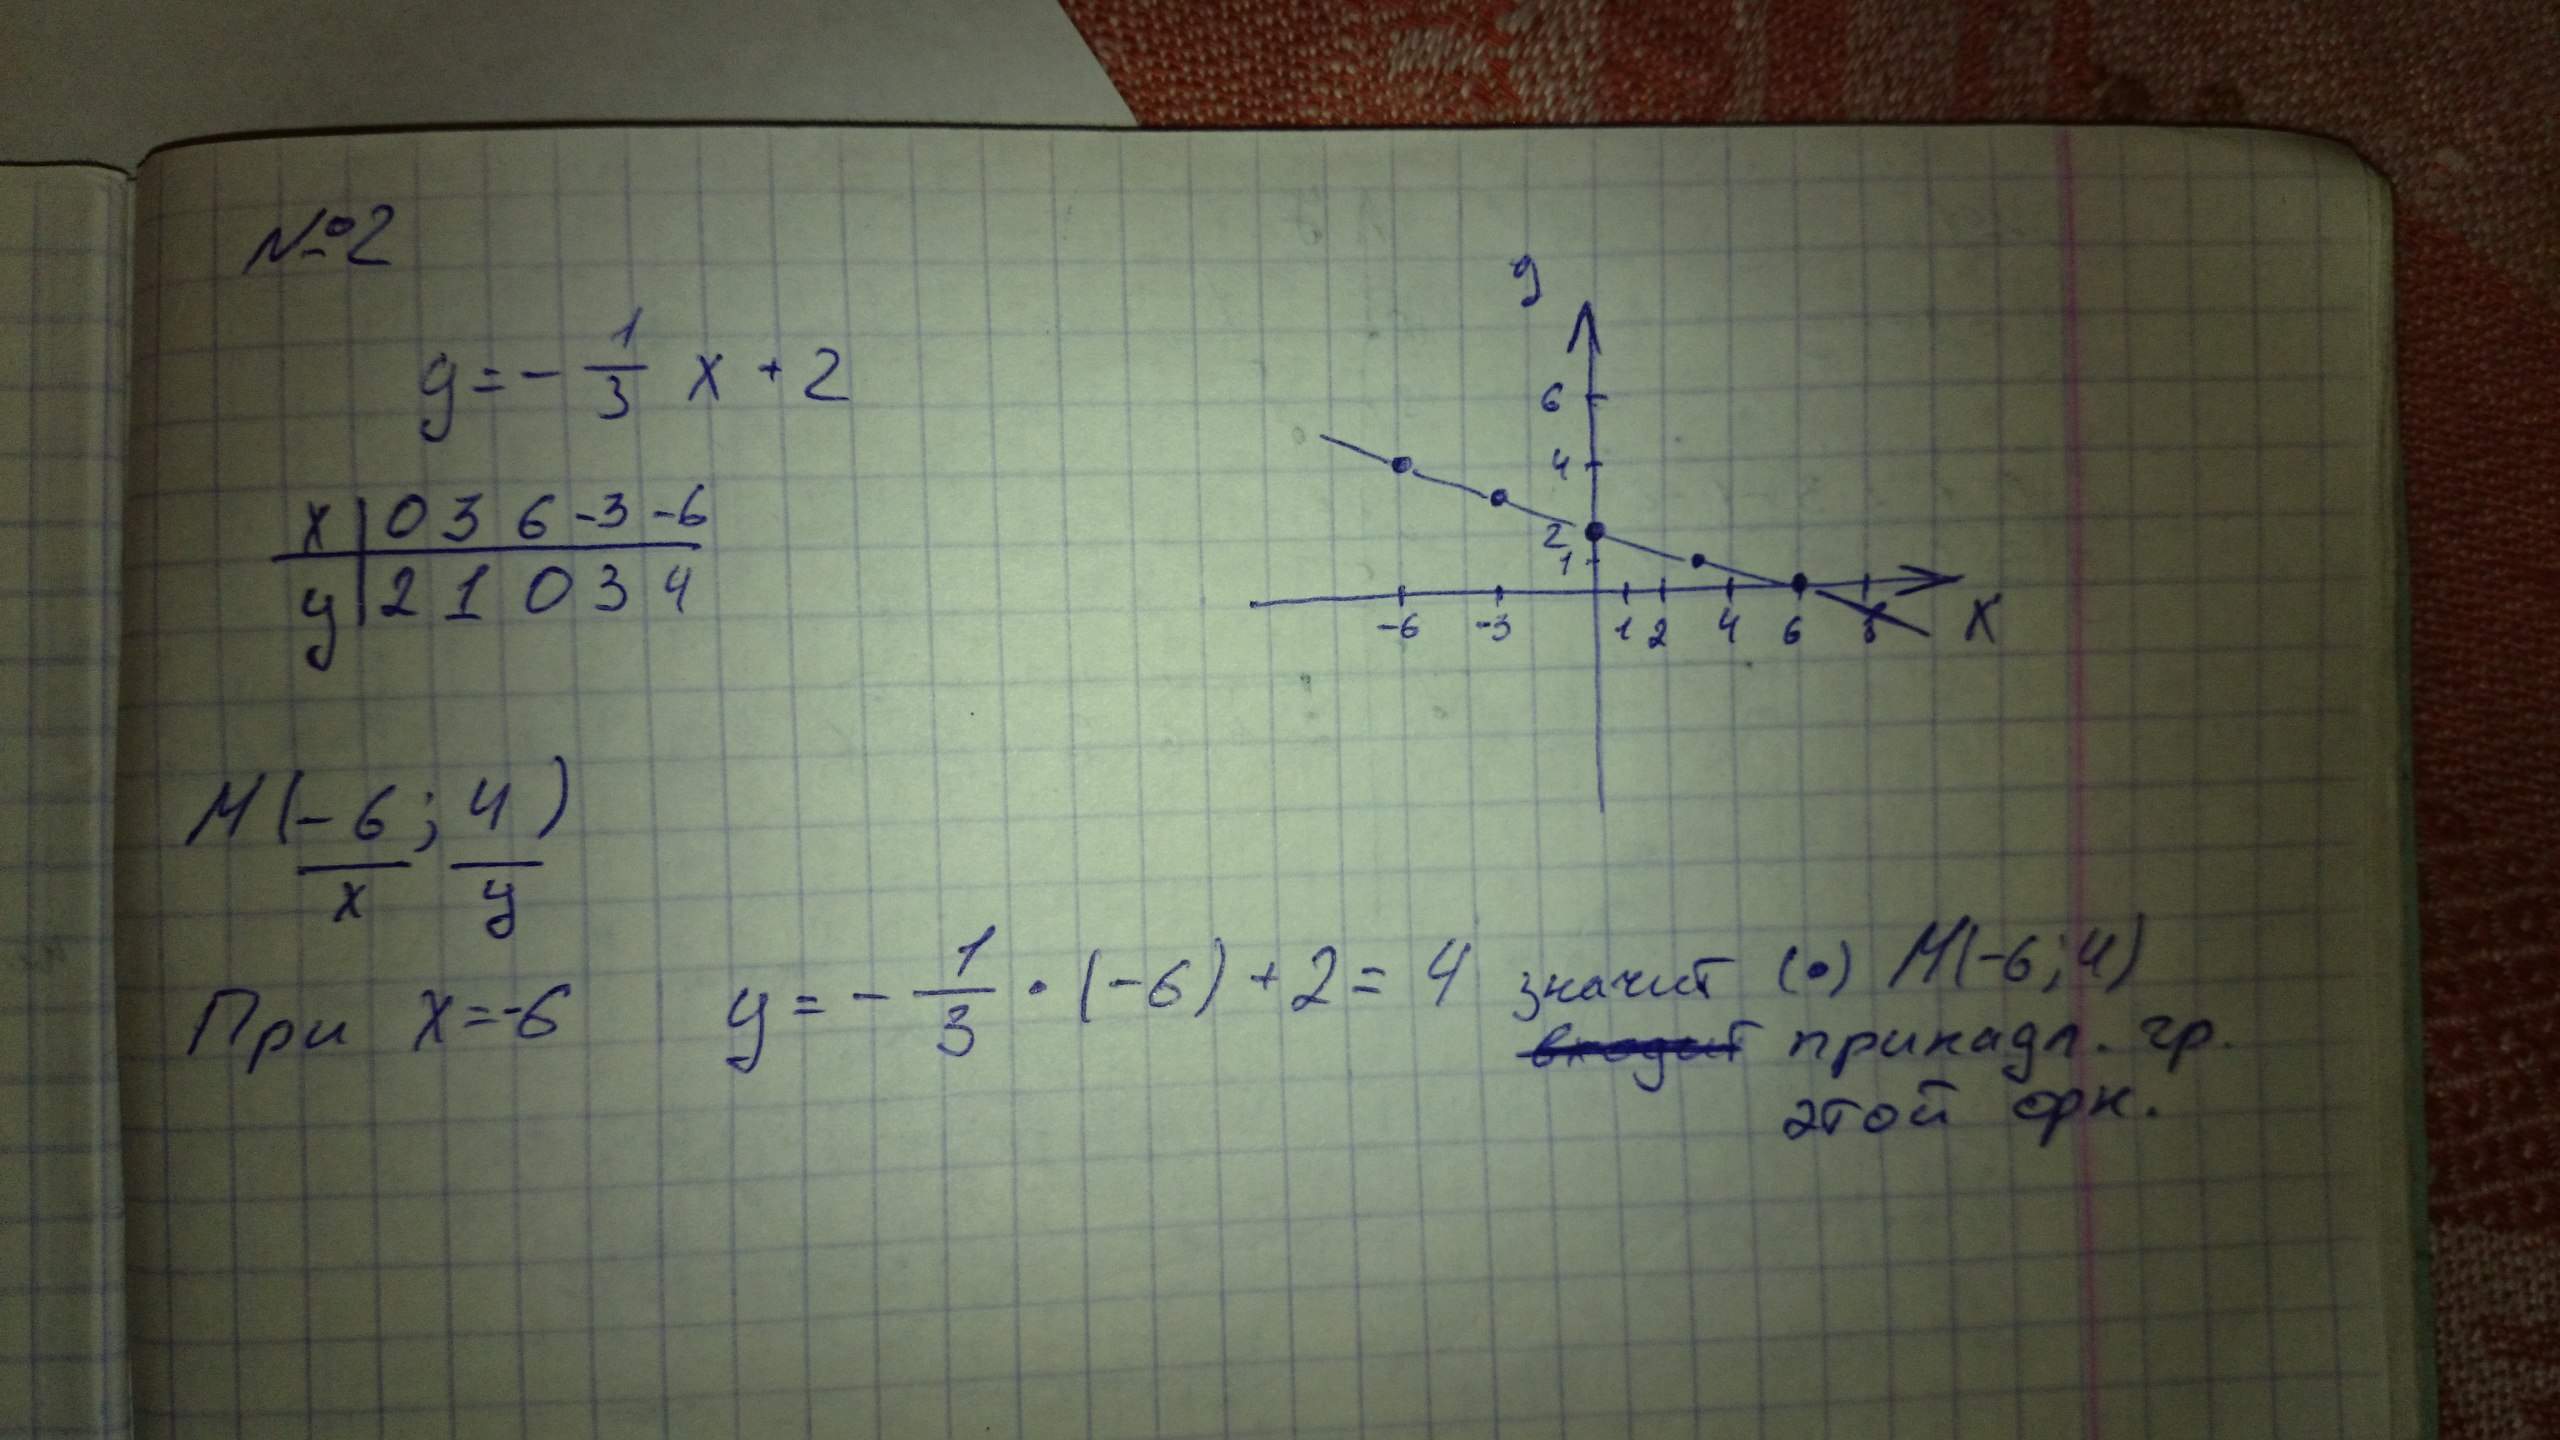 №2
y = - 1/3 x + 2
x | 0 3 6 -3 -6
y | 2 1 0 3 4
y
6
4
2
1
-6 -3 1 2 4 6 8 x
M(-6; 4)
x y
При x=-6 y = - 1/3 · (-6) + 2 = 4 значит (•) M(-6; 4)
входит принадл. гр.
этой фн.